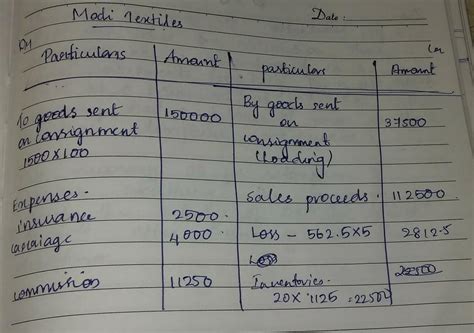 Modi Textiles
Date:
Dr
Cr
Particulars Amount particulars Amount
To goods sent 150000 By goods sent 37500
on consignment on
1500×100 consignment
(Loading)
Sales proceeds. 112500
Expenses-
insurance 2500
carriage 4000 Loss - 562.5×5 2812.5
commission 11250 Inventories- 22500
20× 1125 = 22500